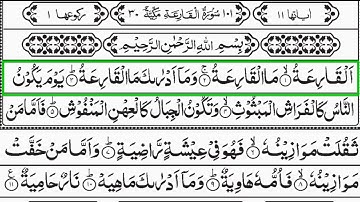 اٰیاتها ١١ ١٠١ سُوْرَةُ الْقَارِعَةِ مَكِّيَّةٌ ٣٠ رکوعها ١
بِسْمِ اللّٰهِ الرَّحْمٰنِ الرَّحِیْمِ
اَلْقَارِعَةُ ۙ﴿١﴾ مَا الْقَارِعَةُ ۚ﴿٢﴾ وَمَاۤ اَدْرٰىكَ مَا الْقَارِعَةُ ؕ﴿٣﴾ یَوْمَ یَكُوْنُ
النَّاسُ كَالْفَرَاشِ الْمَبْثُوْثِ ۙ﴿٤﴾ وَتَكُوْنُ الْجِبَالُ كَالْعِهْنِ الْمَنْفُوْشِ ؕ﴿٥﴾ فَاَمَّا مَنْ
ثَقُلَتْ مَوَازِیْنُهٗ ۙ﴿٦﴾ فَهُوَ فِیْ عِیْشَةٍ رَّاضِیَةٍ ؕ﴿٧﴾ وَاَمَّا مَنْ خَفَّتْ
مَوَازِیْنُهٗ ۙ﴿٨﴾ فَاُمُّهٗ هَاوِیَةٌ ؕ﴿٩﴾ وَمَاۤ اَدْرٰىكَ مَاهِیَهْ ؕ﴿١٠﴾ نَارٌ حَامِیَةٌ ﴿١١﴾